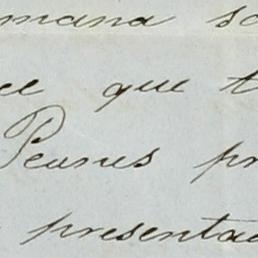 mana so
que t
Peunes pr
presentad